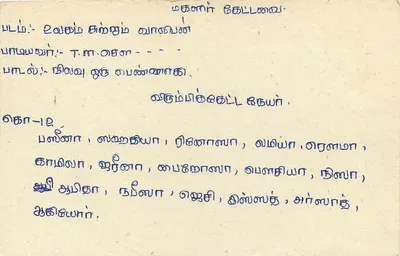 மகளிர் கேட்டவை.
படம்:- உலகம் சுற்றும் வாலிபன்
பாடியவர்:- T.ன.சௌ - - - -
பாடல்:- நிலவு ஒரு பெண்ணாகி.
விரும்பிக்கேட்ட நேயர்.
கொ-12
பஸீனா, ஸஹகியா, ரினோஸா, லமியா, ரௌமா,
காமிலா, ஜரீனா, பைரோஸா, பௌசியா, நிஸா,
ஆபிதா, நபீஸா, ஜெசி, இஸ்ஸத், அர்ஸாத்,
ஆகியோர்.